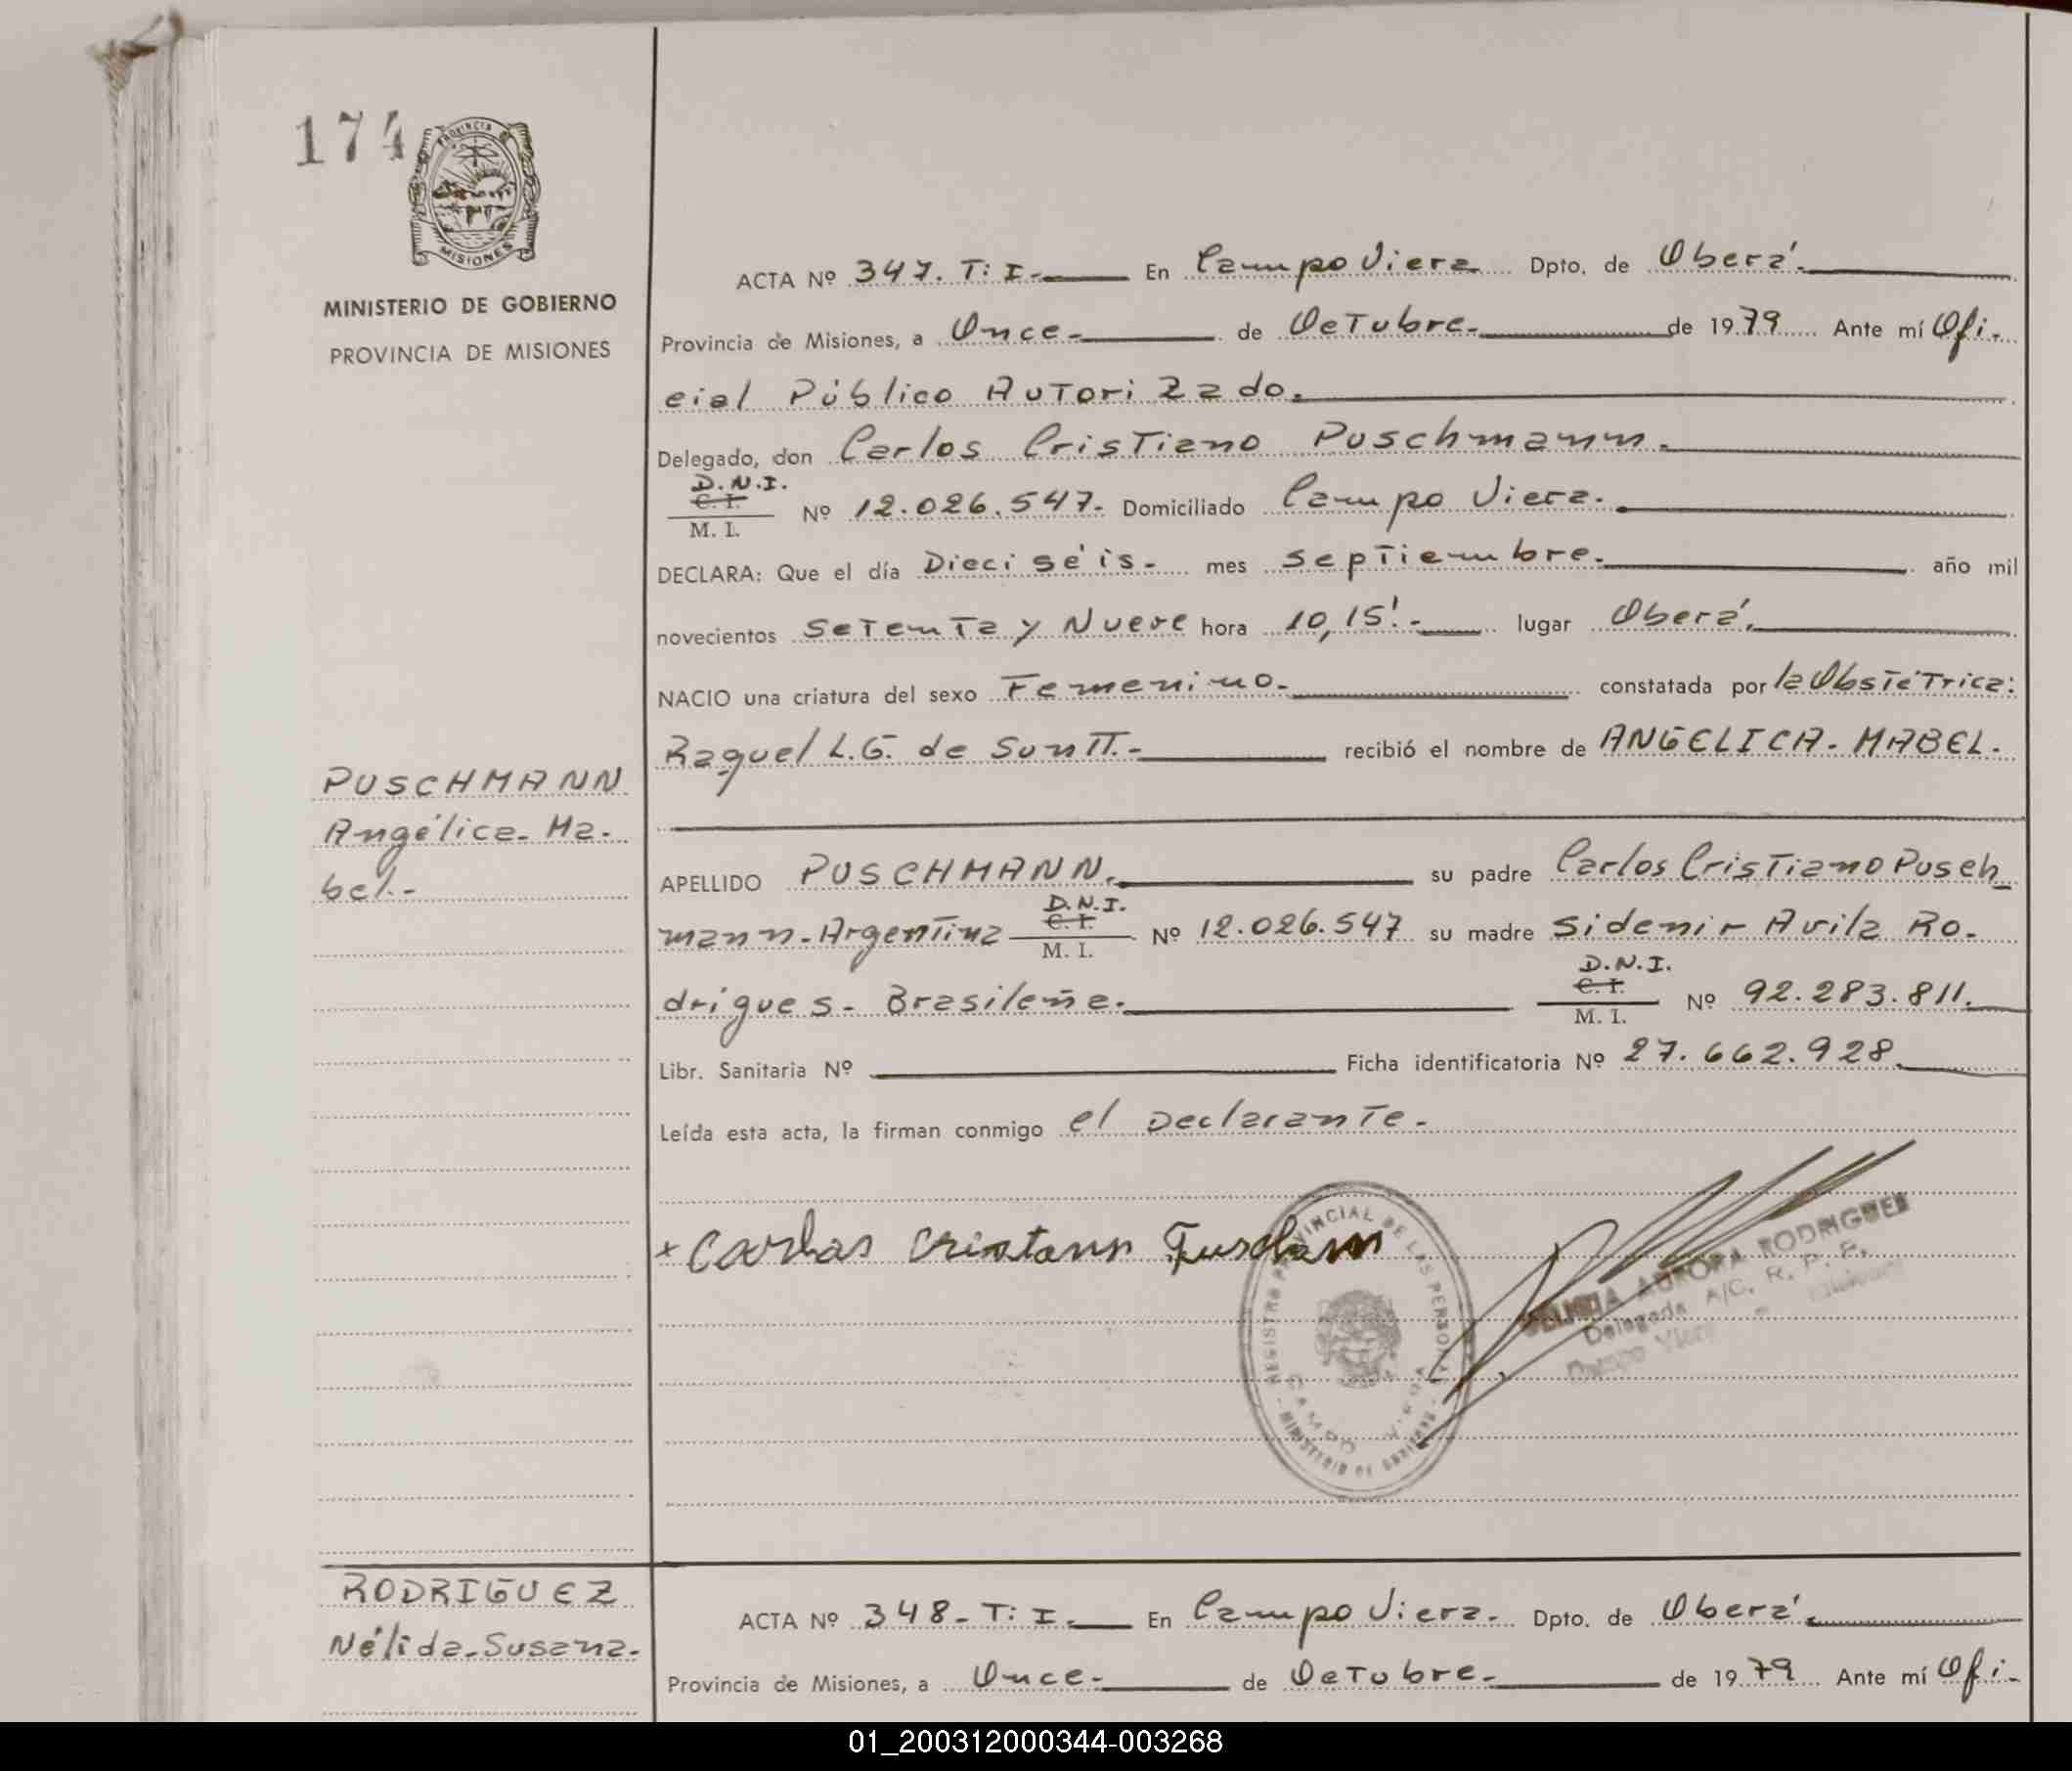 174
PROVINCIA DE
MISIONES
MINISTERIO DE GOBIERNO
PROVINCIA DE MISIONES
ACTA Nº 347. T: I. En Campo Viera Dpto. de Oberá.
Provincia de Misiones, a Once- de Octubre- de 1979 Ante mí Ofi-
cial Público Autorizado.
Delegado, don Carlos Cristiano Puschmann.
D.N.I.
C. I.
M. I.
Nº 12.026.547- Domiciliado Campo Viera.
DECLARA: Que el día Dieciséis- mes septiembre. año mil
novecientos setenta y Nueve hora 10,15'.- lugar Oberá.
NACIO una criatura del sexo Femenino.- constatada por la Obstétrica:
Raquel L.G. de Sontt.- recibió el nombre de ANGELICA- MABEL.
PUSCHMANN
Angélica- Ma-
bel.-
APELLIDO PUSCHMANN. su padre Carlos Cristiano Pusch
mann- Argentina D.N.I. C. I. M. I. Nº 12.026.547 su madre Sidenir Avila Ro-
drigues- Brasileña. D.N.I. C. I. M. I. Nº 92.283.811.
Libr. Sanitaria Nº Ficha identificatoria Nº 27.662.928.
Leída esta acta, la firman conmigo el Declarante-
REGISTRO PROVINCIAL DE LAS PERSONAS
CAMPO VIERA
MINISTERIO DE GOBIERNO
AURORA RODRIGUEZ
Delegada A/C. R. P. P.
Campo Viera
RODRIGUEZ
Nélida-Susana-
ACTA Nº 348- T: I. En Campo Viera- Dpto. de Oberá.
Provincia de Misiones, a Once- de Octubre- de 1979 Ante mí Ofi-
01_200312000344-003268